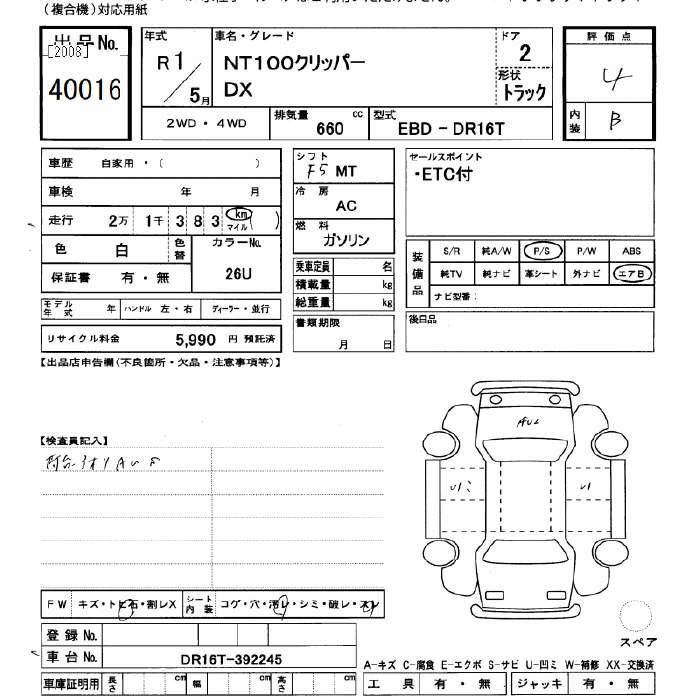 (複合機)対応用紙
出品No.
[2008]
40016
年式
R1/5月
車名・グレード
NT100クリッパー
DX
ドア
2
形状
トラック
評価点
4
内装
B
2WD・4WD
排気量 660 cc
型式 EBD-DR16T
車歴 自家用・( )
車検 年 月
走行 2万 1千 3 8 3 km マイル ( )
色 白 色替
カラーNo.
26U
保証書 有・無
モデル年式 年 ハンドル 左・右 ディーラー・並行
リサイクル料金 5,990 円 預託済
シフト
F5 MT
冷房
AC
燃料
ガソリン
乗車定員 名
積載量 kg
総重量 kg
書類期限
月 日
セールスポイント
・ETC付
装備品
S/R 純A/W P/S P/W ABS
純TV 純ナビ 革シート 外ナビ エアB
ナビ型番:
後日品
【出品店申告欄(不良箇所・欠品・注意事項等)】
【検査員記入】
AU2
U1
FW キズ・トビ石・割レX シート内装 コゲ・穴・汚レ・シミ・破レ・スレ
登録No.
車台No. DR16T-392245
車庫証明用 長さ cm 幅 cm 高さ cm
スペア
A-キズ C-腐食 E-エクボ S-サビ U-凹ミ W-補修 XX-交換済
工具 有・無 ジャッキ 有・無